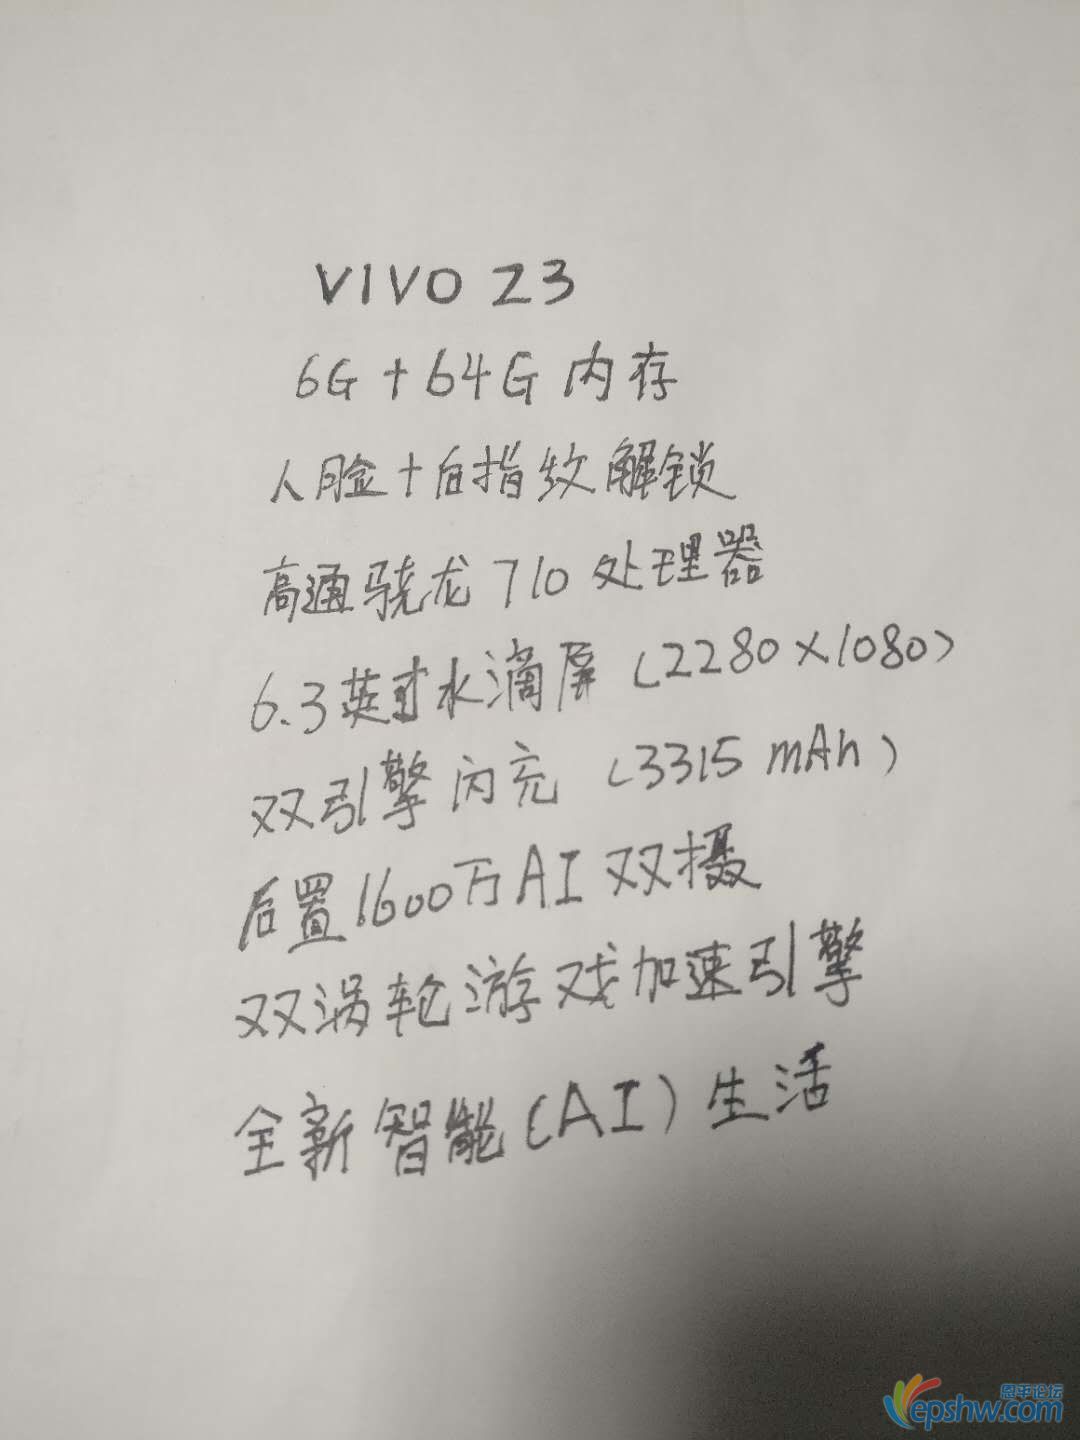 VIVO Z3
6G+64G 内存
人脸+白指纹解锁
高通骁龙710处理器
6.3英寸水滴屏(2280×1080)
双引擎闪充(3315mAh)
后置1600万AI双摄
双涡轮游戏加速引擎
全新智能(AI)生活
恩平论坛
epshw.com